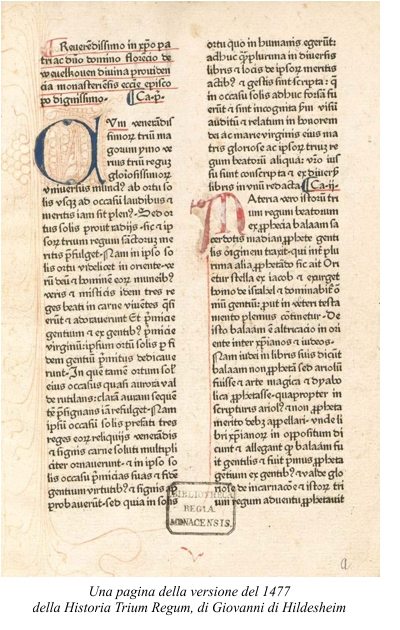 Reuerēdissimo in xp̄o pa
tri ac dn̄o domino florecio de
weuelkouen diuina prouiden
cia monasteriēsis eccl̄ie episco
po dignissimo. Ca. p.
CVm venerādis
simorū triū ma
gorum ymo ve
rius triū regū
gloiosissimorū
vniuersus mūdꝰ ab ortu so
lis vsqꝫ ad occasū laudibus &
meritis iam sit plenꝰ. Sed or
tus solis prout radijs. sic & ip
sorū trium regum sāctorū me
ritis p̄fulget. Nam in ipso so
lis ortu videlicet in oriente ve
rū deū & hoīnē eorū muneribꝰ
veris & misticis idem tres re
ges beati in carne viuētes q̄si
erūt & adorauerunt Et p̄micie
gentium & ex gentibꝰ p̄micie
virginū: ipsum ortū solis ꝑ fi
dem gentiū p̄mitus dedicaue
runt. In quē tamē ortum sol'
eius occasus quasi aurora val
de rutilans: clarā aurā sequē
tē p̄signans iā refulget. Nam
ipsum occasū solis prefati tres
reges eorū reliquijs venerādis
& signis carne soluti multipli
citer ornauerunt. & in ipso so
lis occasu p̄micias suas & fidē
gentium virtutibꝰ & signis ap
probauerūt. sed quia in solis
ortu quo in humanis egerūt:
adhuc q̄ plurima in diuersis
libris & locis de ipsorū meritis
actibꝰ & gestis sunt scripta: q̄
in occasu solis adhuc forsā fu
erūt & sunt incognita ꝑm visū
auditū & relatum in honorem
dei ac marie virginis eius ma
tris gloriose ac ipsorū triū re
gum beatorū aliqua: vr̄o ius
su sunt conscripta & ex diuersꝭ
libris in vnū redacta Ca. ij.
MAteria vero istorū tri
um regum beatorum
ex ꝓphecia balaam sa
cerdotis madian ꝓphete genti
lis originem traxit. qui int̄ plu
rima alia ꝓphetādo sic ait Ori
etur stella ex iacob & exurget
homo de israhel & dominabit̄ o
mnū gentiū: put in veteri testa
mento plenius cōtinetur. De
isto balaam ē altricacio in ori
ente inter xp̄ianos & iudeos.
Nam iudei in libris suis dicūt
balaam non ꝓphetā sed ariolū
fuisse & arte magica & dyabo
lica ꝓphetasse. quapropter in
scripturis ariolꝰ & non ꝓpheta
merito debꝫ appellari. vnde li
bri xp̄ianorꝫ in oppositum di
cunt & allegant ꝙ balaam fu
it gentilis & fuit p̄mus ꝓpheta
gētium ex gentibꝰ & valde glo
riose de incarnacōe & istorū tri
um regum aduentu ꝓphetauit
BIBLIOTHECA
REGIA
MONACENSIS.
a
Una pagina della versione del 1477
della Historia Trium Regum, di Giovanni di Hildesheim